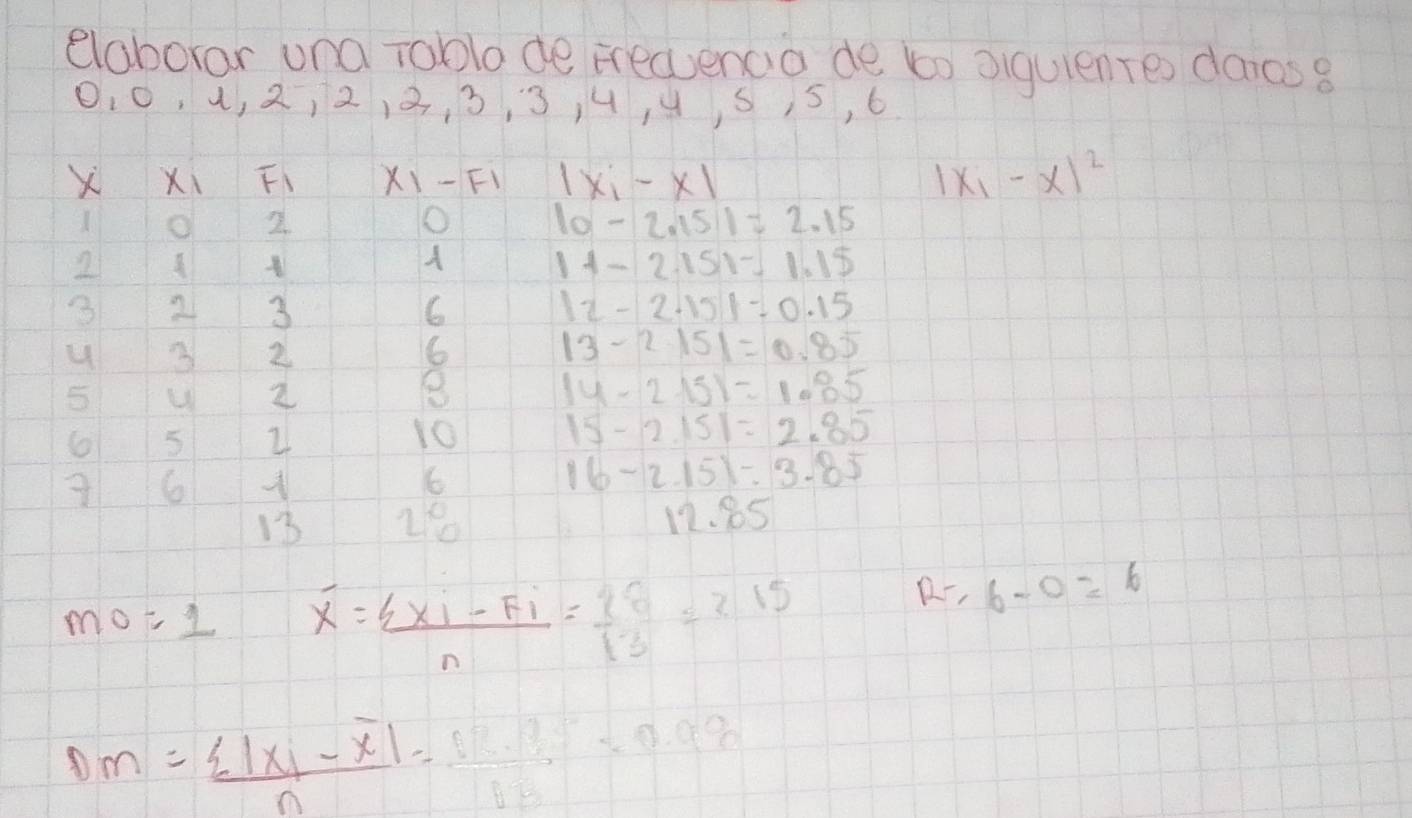 elaborar una Tabla de Frecuencia de los siguientes datos:
0, 0, 1, 2, 2, 2, 3, 3, 4, 4, 5, 5, 6
X Xi Fi Xi-Fi |Xi-X| |Xi-X|²
1 0 2 0 |0-2.15|=2.15
2 1 1 1 |1-2.15|=1.15
3 2 3 6 |2-2.15|=0.15
4 3 2 6 |3-2.15|=0.85
5 4 2 8 |4-2.15|=1.85
6 5 2 10 |5-2.15|=2.85
7 6 1 6 |6-2.15|=3.85
13 28 12.85
mo=2 x̄=Σxi-Fi/n=28/13=2.15 R=6-0=6
Dm=Σ|xi-x̄|/n=12.85/13=0.98